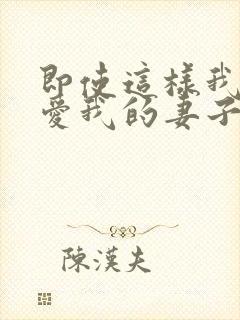 即使這樣我
愛我的妻子
陳漢夫